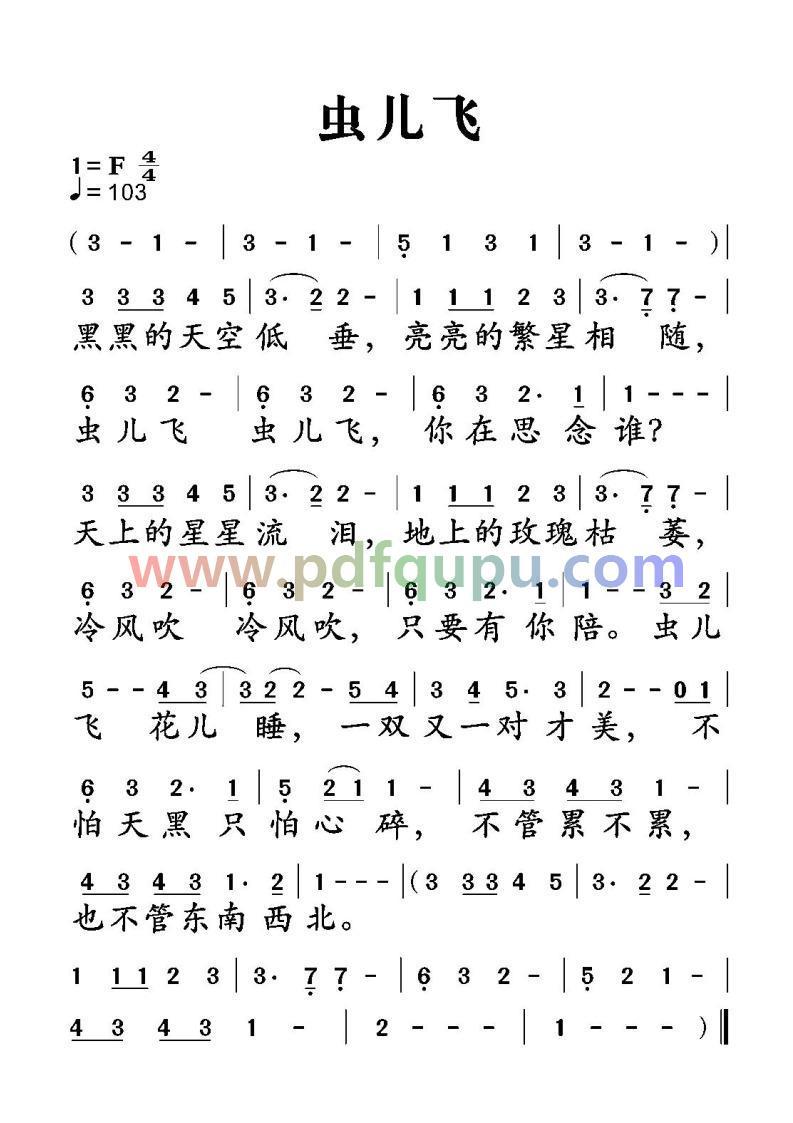 虫儿飞
1=F 4/4
♩=103
(3 - 1 - | 3 - 1 - | 5̣ 1 3 1 | 3 - 1 - )|
3 3 3 4 5 | 3· 2 2 - | 1 1 1 2 3 | 3· 7̣ 7̣ - |
黑黑的天空低 垂，亮亮的繁星相 随，
6̣ 3 2 - | 6̣ 3 2 - | 6̣ 3 2· 1 | 1 - - - |
虫儿飞 虫儿飞，你在思念谁？
3 3 3 4 5 | 3· 2 2 - | 1 1 1 2 3 | 3· 7̣ 7̣ - |
天上的星星流 泪，地上的玫瑰枯 萎，
www.pdfqupu.com
6̣ 3 2 - | 6̣ 3 2 - | 6̣ 3 2· 1 | 1 - - 3 2 |
冷风吹 冷风吹，只要有你陪。虫儿
5 - - 4 3 | 3 2 2 - 5 4 | 3 4 5· 3 | 2 - - 0 1 |
飞 花儿睡，一双又一对才美，不
6̣ 3 2· 1 | 5̣ 2 1 1 - | 4 3 4 3 1 - |
怕天黑只怕心碎，不管累不累，
4 3 4 3 1· 2 | 1 - - - | (3 3 3 4 5 | 3· 2 2 - |
也不管东南西北。
1 1 1 2 3 | 3· 7̣ 7̣ - | 6̣ 3 2 - | 5̣ 2 1 - |
4 3 4 3 1 - | 2 - - - | 1 - - - )‖